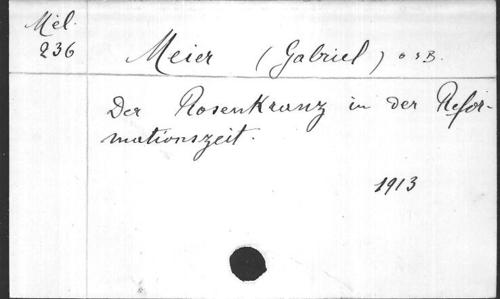 Mél.
236
Meier (Gabriel) O.S.B.
Der Rosenkranz in der Refor-
mationszeit.
1913